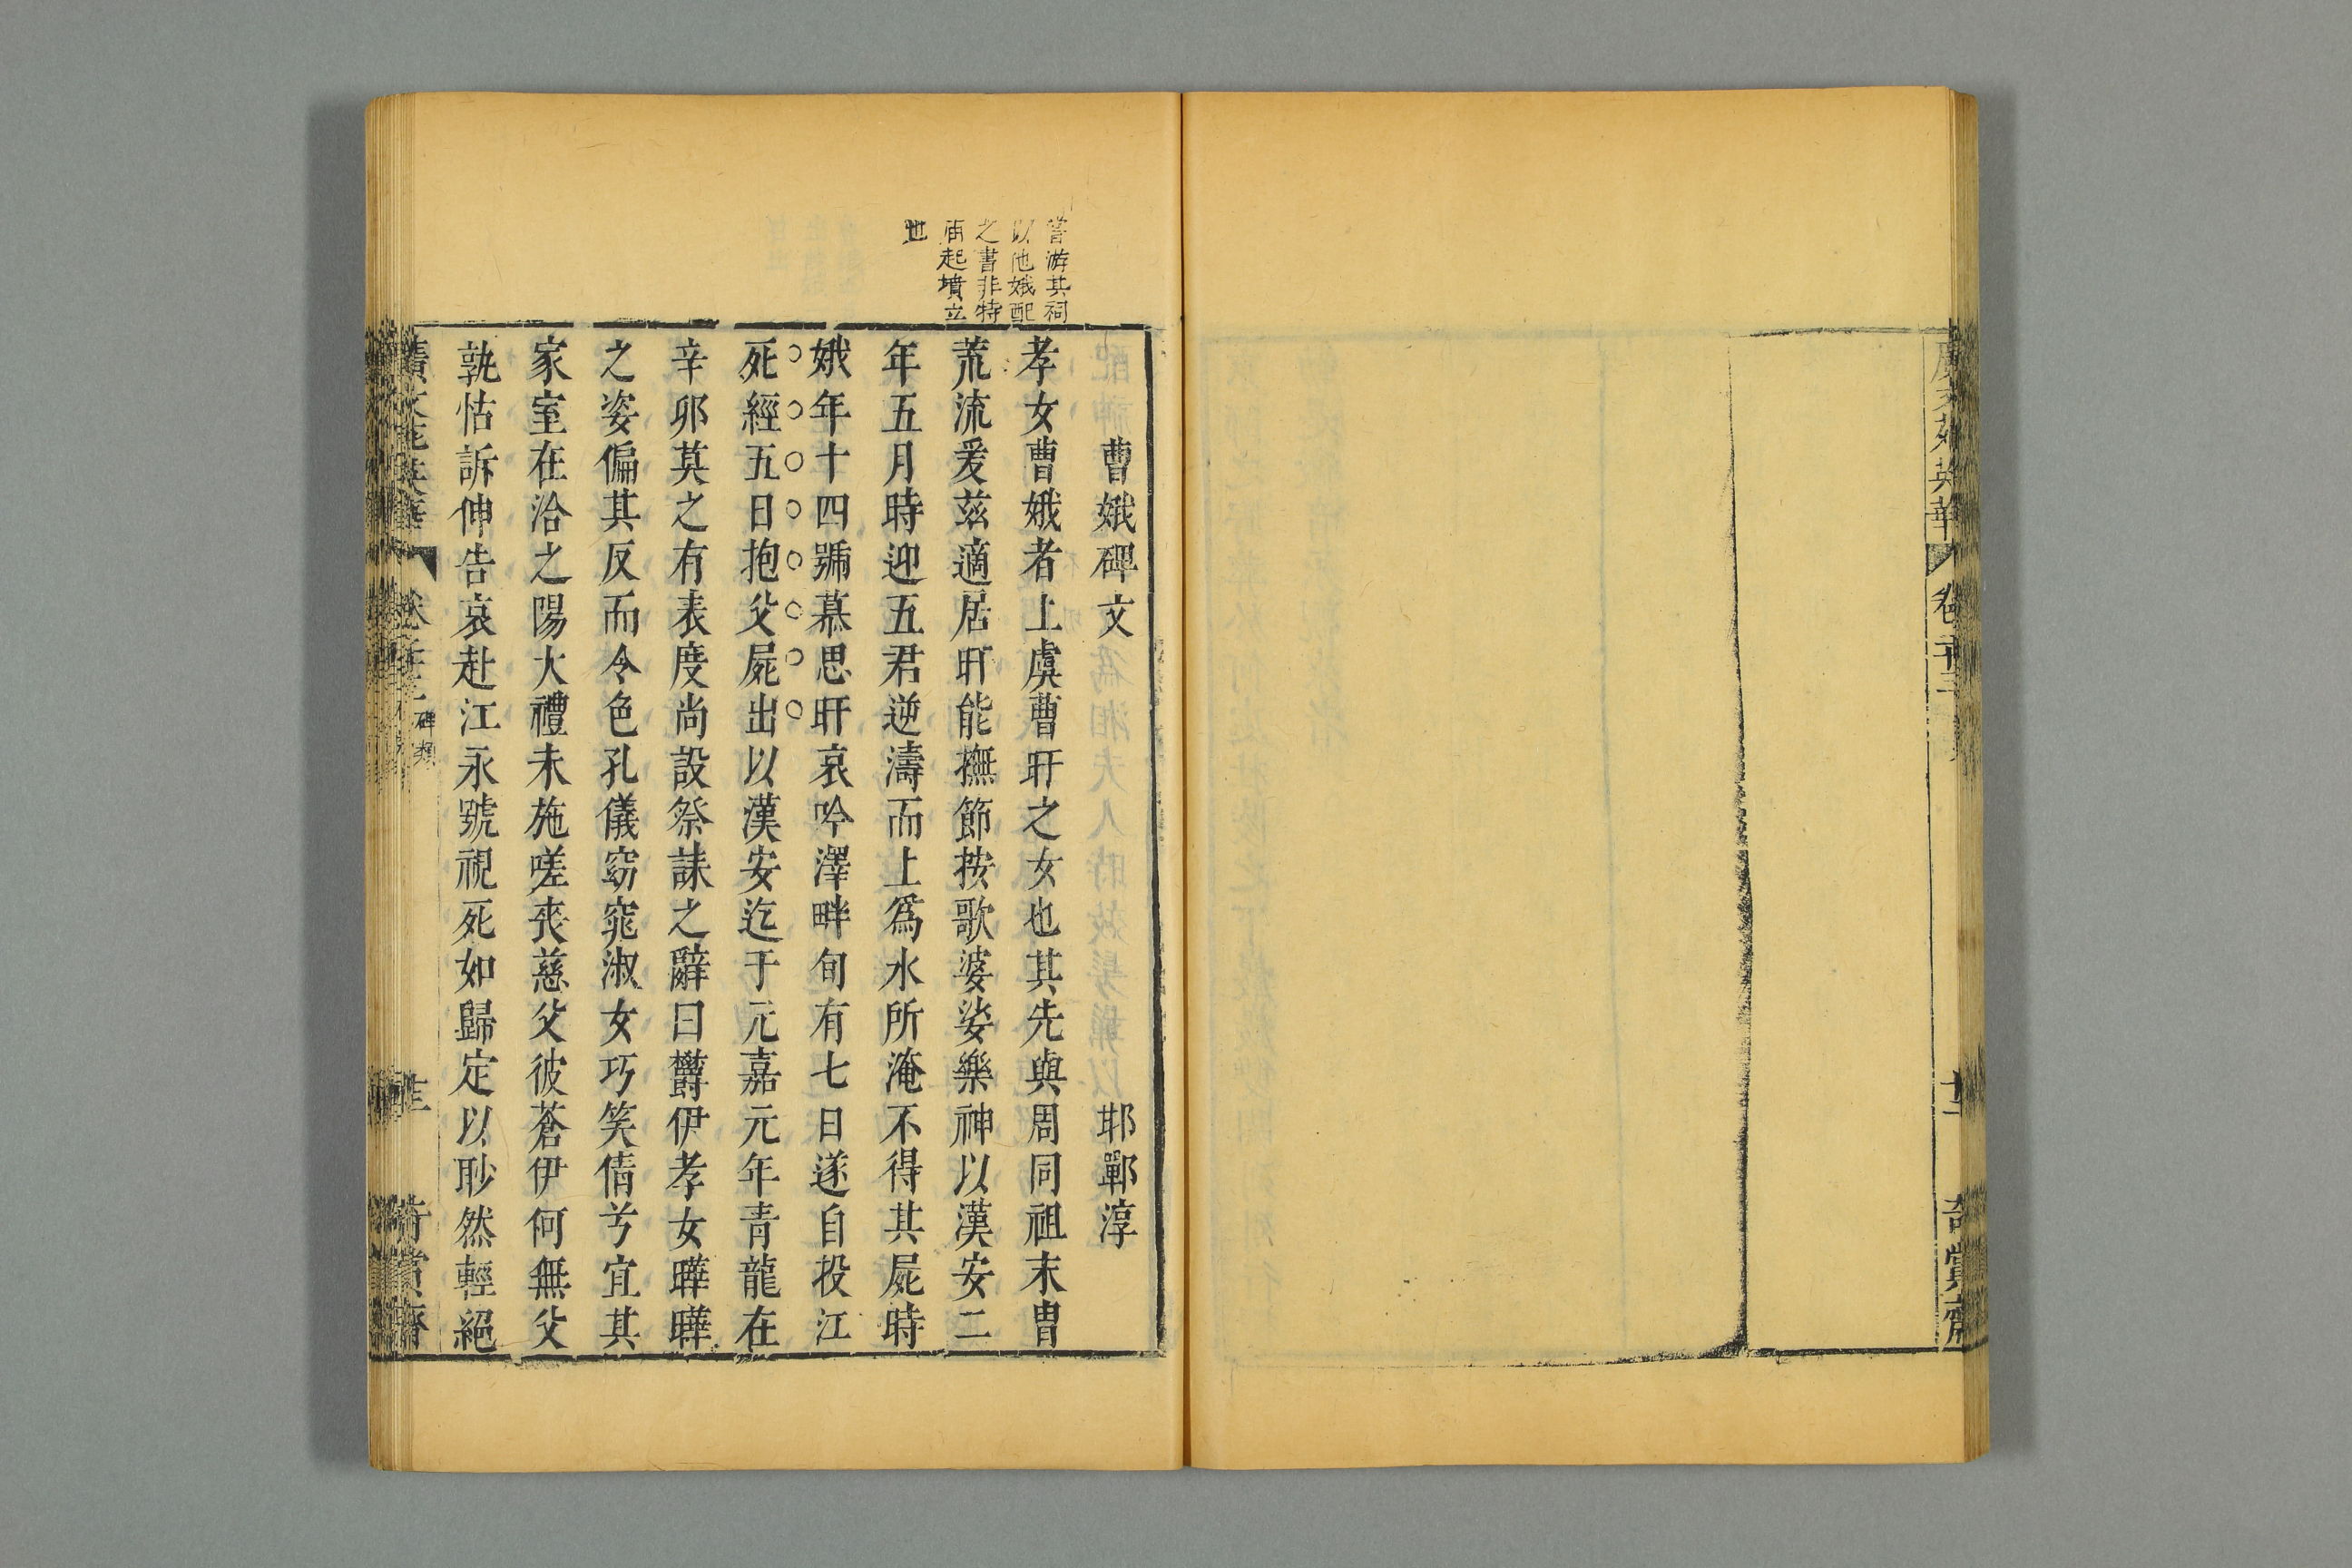 廣文苑英華
卷二十三
奇賞齋
嘗游其祠
以他娥配
之書非特
庙起墳立
也
曹娥碑文 邯鄲淳
孝女曹娥者上虞曹旰之女也其先與周同祖末胄
荒流爰茲適居旰能撫節按歌婆娑樂神以漢安二
年五月時迎五君逆濤而上爲水所淹不得其屍時
娥年十四號慕思旰哀吟澤畔旬有七日遂自投江
死經五日抱父屍出以漢安迄于元嘉元年青龍在
辛卯莫之有表度尚設祭誄之辭曰欝伊孝女曄曄
之姿偏其反而令色孔儀窈窕淑女巧笑倩兮宜其
家室在洽之陽大禮未施嗟喪慈父彼蒼伊何無父
孰怙訴伸告哀赴江永號視死如歸定以眇然輕絕
碑類
奇賞齋